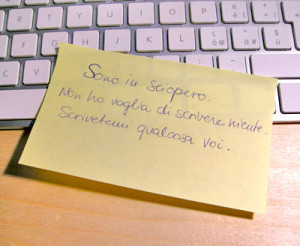 Sono in sciopero.
Non ho voglia di scrivere niente.
Scrivetemi qualcosa voi.